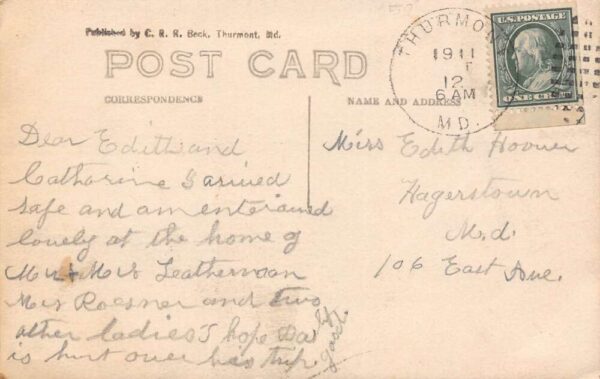 Published by C. R. R. Beck, Thurmont, Md.
POST CARD
CORRESPONDENCE
NAME AND ADDRESS
THURMO
1911
12
6 AM
MD.
U.S. POSTAGE
ONE CENT
Dear Edith and
Catharine I arived
safe and am enterained
lovely at the home of
Mr & Mrs Leatherman
Roesner and two
other ladies I hope Da
is hurt over his trip
Miss Edith Hoover
Hagerstown
M.d.
106 East Ave.